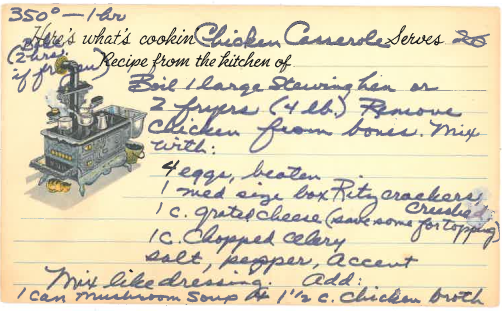 350° — 1 hr
Here's what's cookin Chicken Casserole Serves 20
Bake
(2 hrs.
if frozen)
Recipe from the kitchen of
Boil 1 large Stewing hen or
2 fryers (4 lb.) Remove
Chicken from bones. Mix
with:
4 eggs, beaten
1 med size box Ritz crackers,
Crushed
1 c. grated cheese (save some for topping)
1 c. Chopped celery
salt, pepper, accent
Mix like dressing. Add:
1 can mushroom soup & 1 1/2 c. Chicken broth